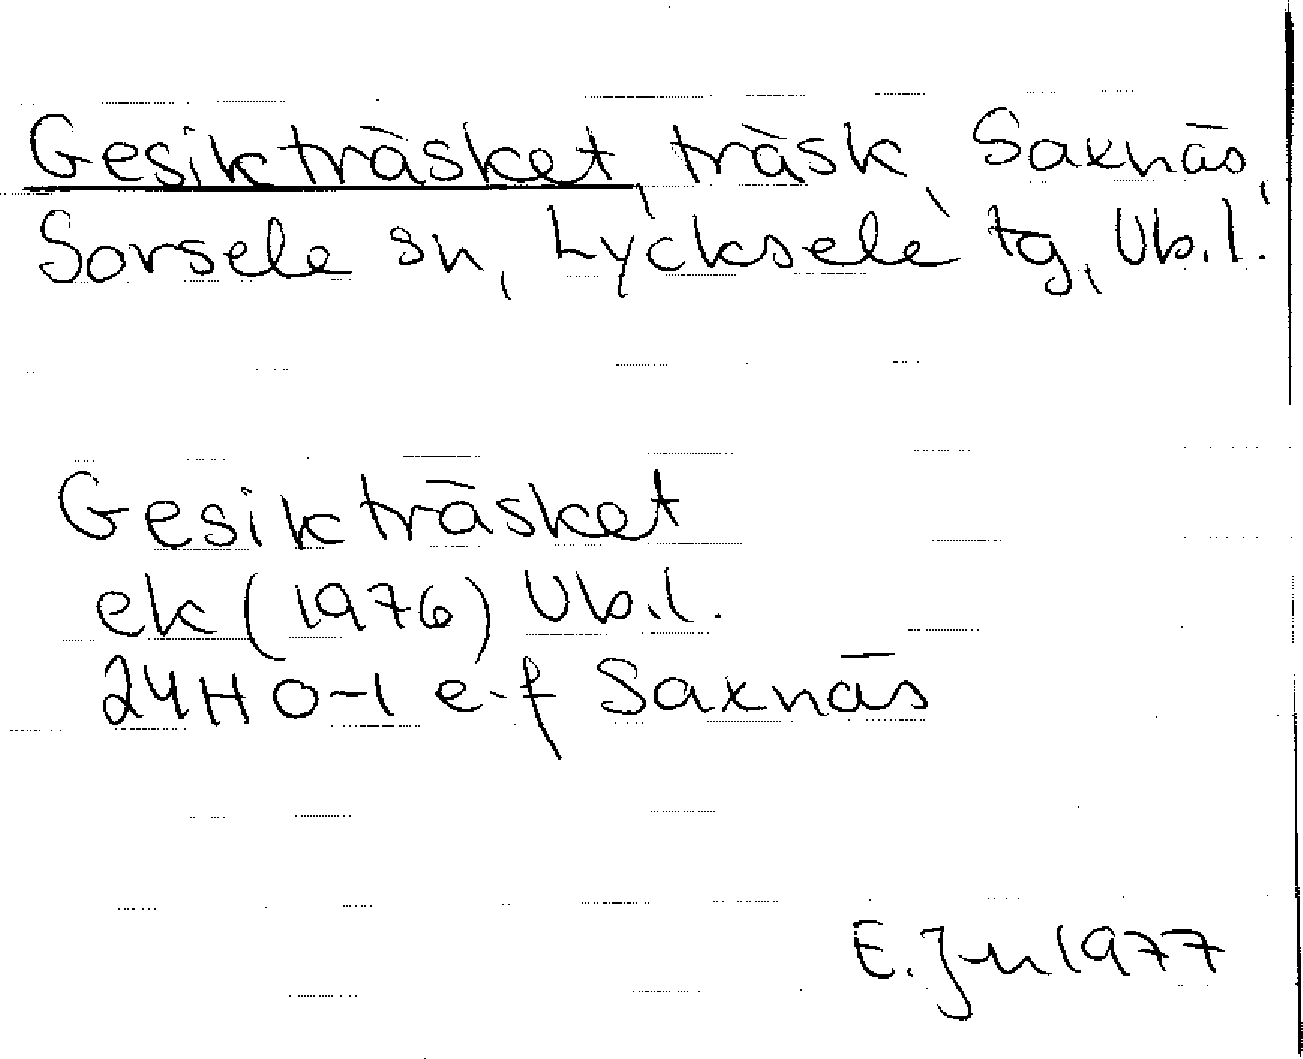 Gesikträsket, träsk, Saxnäs,
Sorsele sn, Lycksele tg, Vb.l.
Gesikträsket
ek (1976) Vb.l.
24H 0-1 e-f Saxnäs
E. Jn 1977